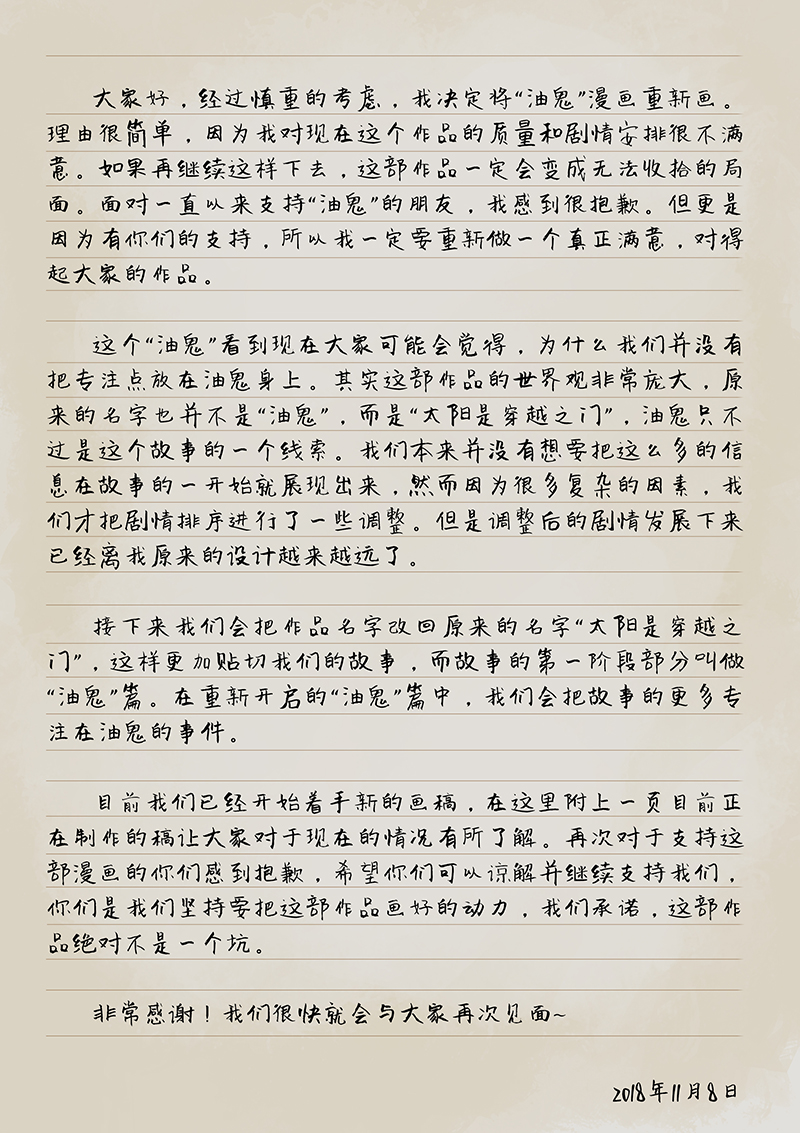 大家好，经过慎重的考虑，我决定将“油鬼”漫画重新画。
理由很简单，因为我对现在这个作品的质量和剧情安排很不满
意。如果再继续这样下去，这部作品一定会变成无法收拾的局
面。面对一直以来支持“油鬼”的朋友，我感到很抱歉。但更是
因为有你们的支持，所以我一定要重新做一个真正满意，对得
起大家的作品。
这个“油鬼”看到现在大家可能会觉得，为什么我们并没有
把专注点放在油鬼身上。其实这部作品的世界观非常庞大，原
来的名字也并不是“油鬼”，而是“太阳是穿越之门”，油鬼只不
过是这个故事的一个线索。我们本来并没有想要把这么多的信
息在故事的一开始就展现出来，然而因为很多复杂的因素，我
们才把剧情排序进行了一些调整。但是调整后的剧情发展下来
已经离我原来的设计越来越远了。
接下来我们会把作品名字改回原来的名字“太阳是穿越之
门”，这样更加贴切我们的故事，而故事的第一阶段部分叫做
“油鬼”篇。在重新开启的“油鬼”篇中，我们会把故事的更多专
注在油鬼的事件。
目前我们已经开始着手新的画稿，在这里附上一页目前正
在制作的稿让大家对于现在的情况有所了解。再次对于支持这
部漫画的你们感到抱歉，希望你们可以谅解并继续支持我们，
你们是我们坚持要把这部作品画好的动力，我们承诺，这部作
品绝对不是一个坑。
非常感谢！我们很快就会与大家再次见面~
2018年11月8日